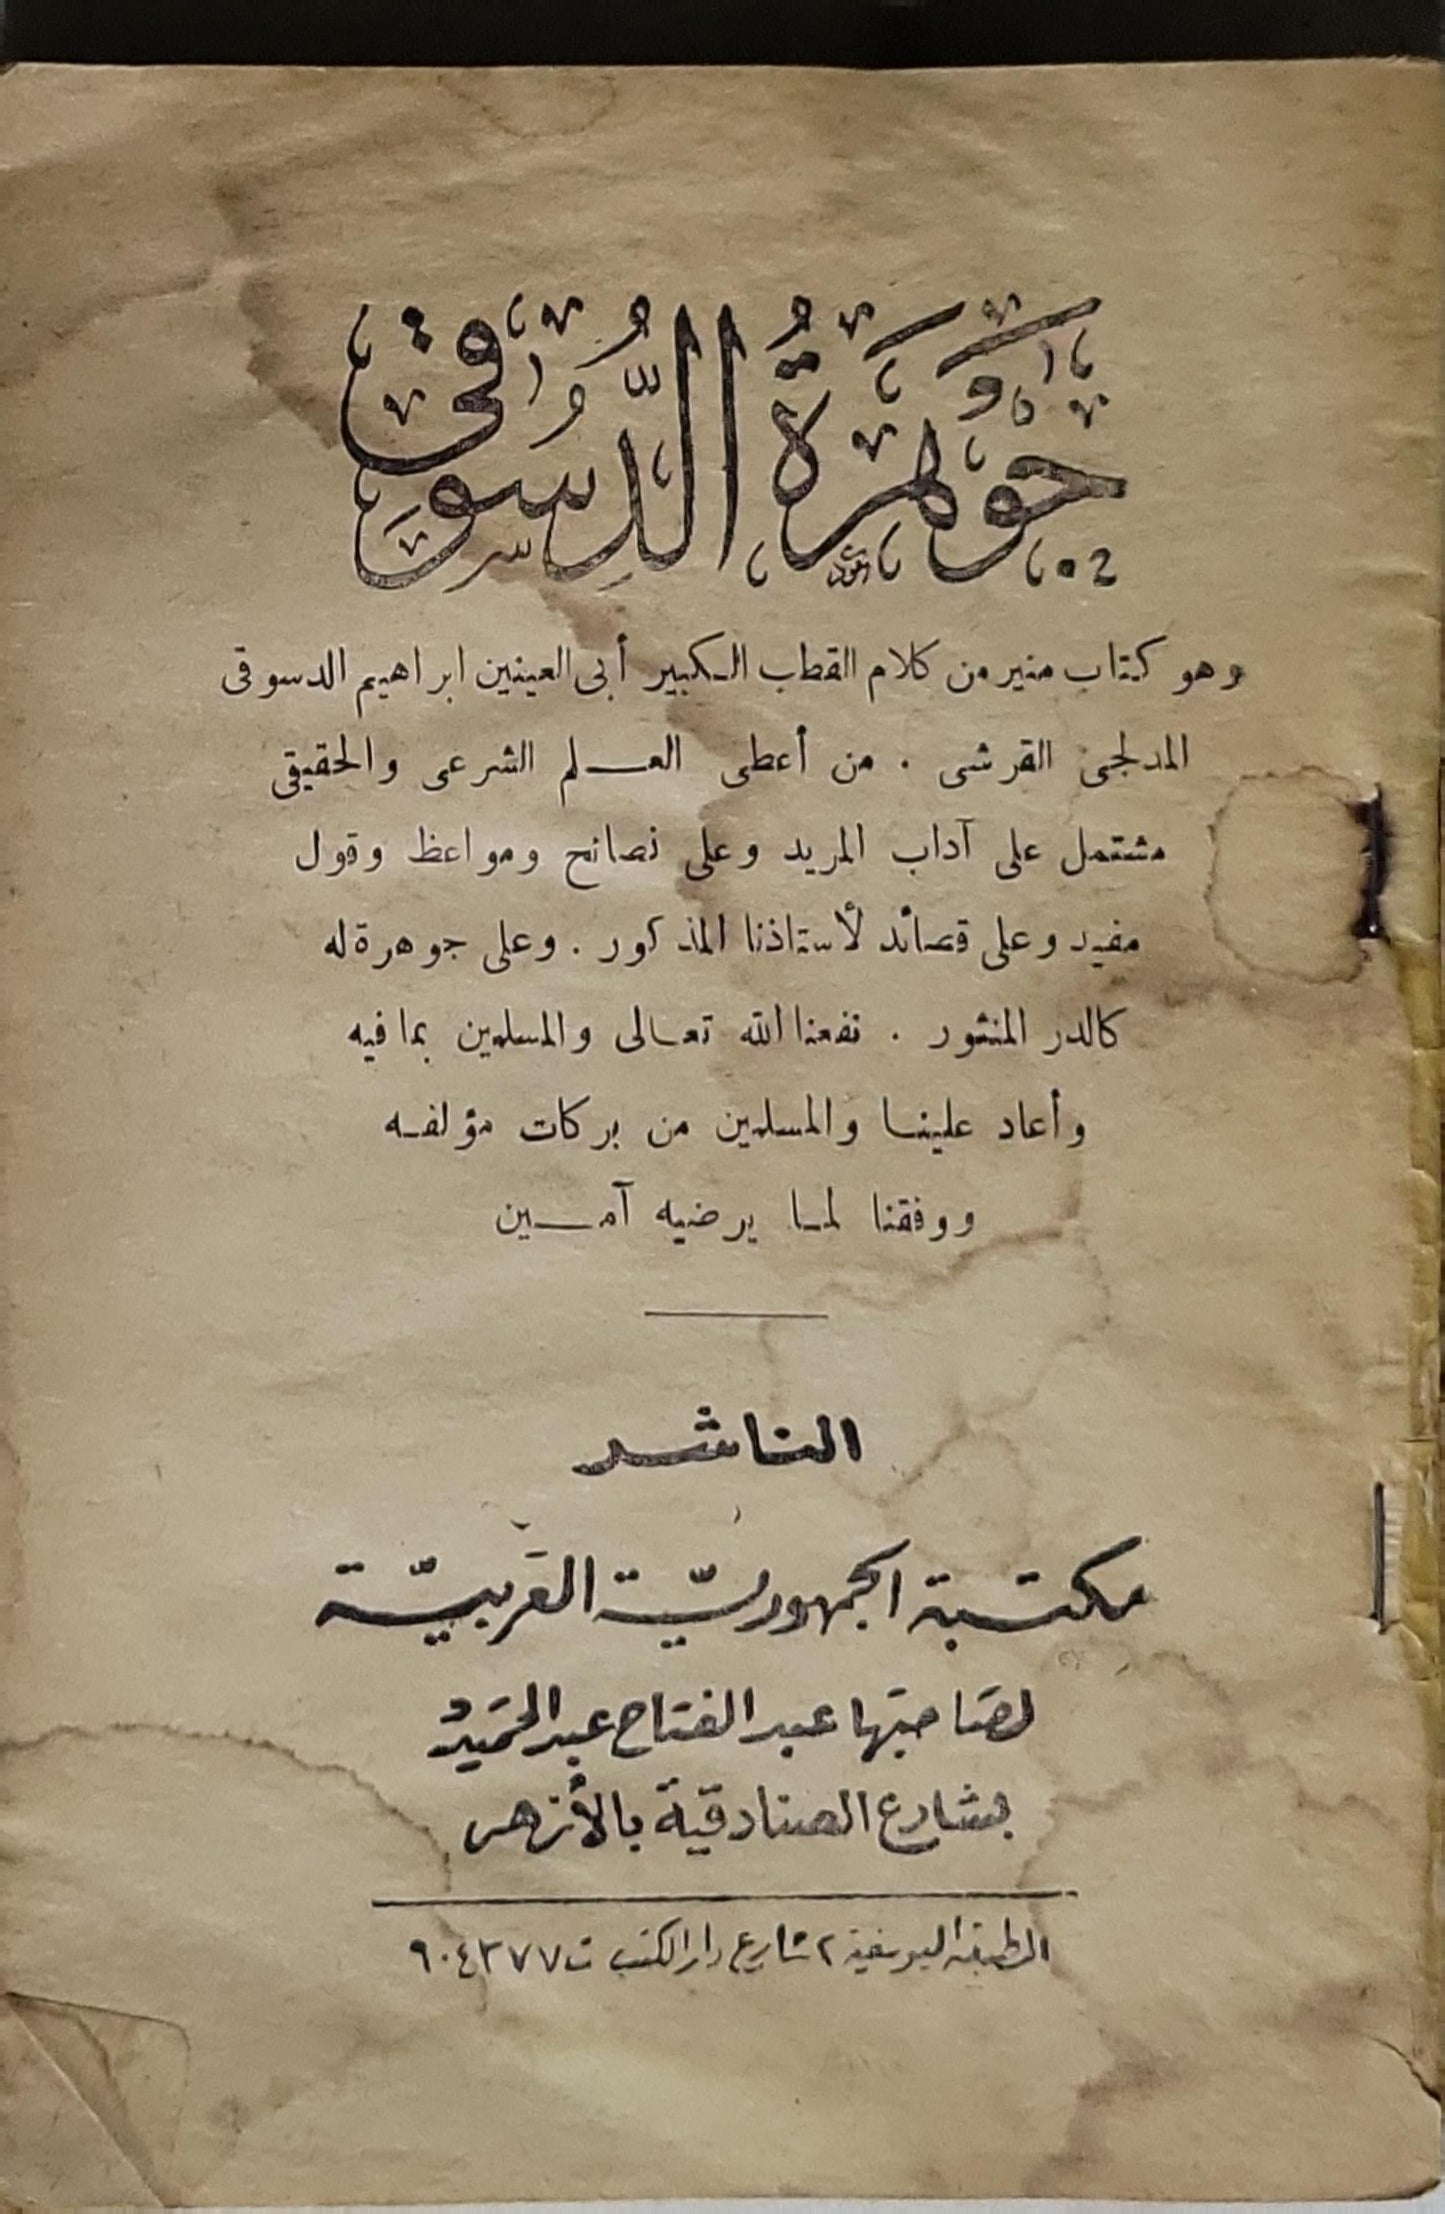 جَوْهَرَةُ الدُّسُوقِي
وهو كتاب منير من كلام القطب الكبير أبى العينين ابراهيم الدسوقى
المدلجى القرشى . من أعطى العـلم الشرعى والحقيقى
مشتمل على آداب المريد وعلى نصائح ومواعظ وقول
مفيد وعلى قصائد لأستاذنا المذكور . وعلى جوهرة له
كالدر المنثور . نفعنا الله تعالى والمسلمين بما فيه
وأعاد علينا والمسلمين من بركات مؤلفه
ووفقنا لما يرضيه آمـين
الناشر
مكتبة الجمهوريّة العَربيّة
لصَاحبَها عبد الفتاح عبد الحَميد
بشارع الصنادقية بالأزهر
المطبعة اليوسفية ٢ شارع دار الكتب ت ٩٠٤٣٧٧